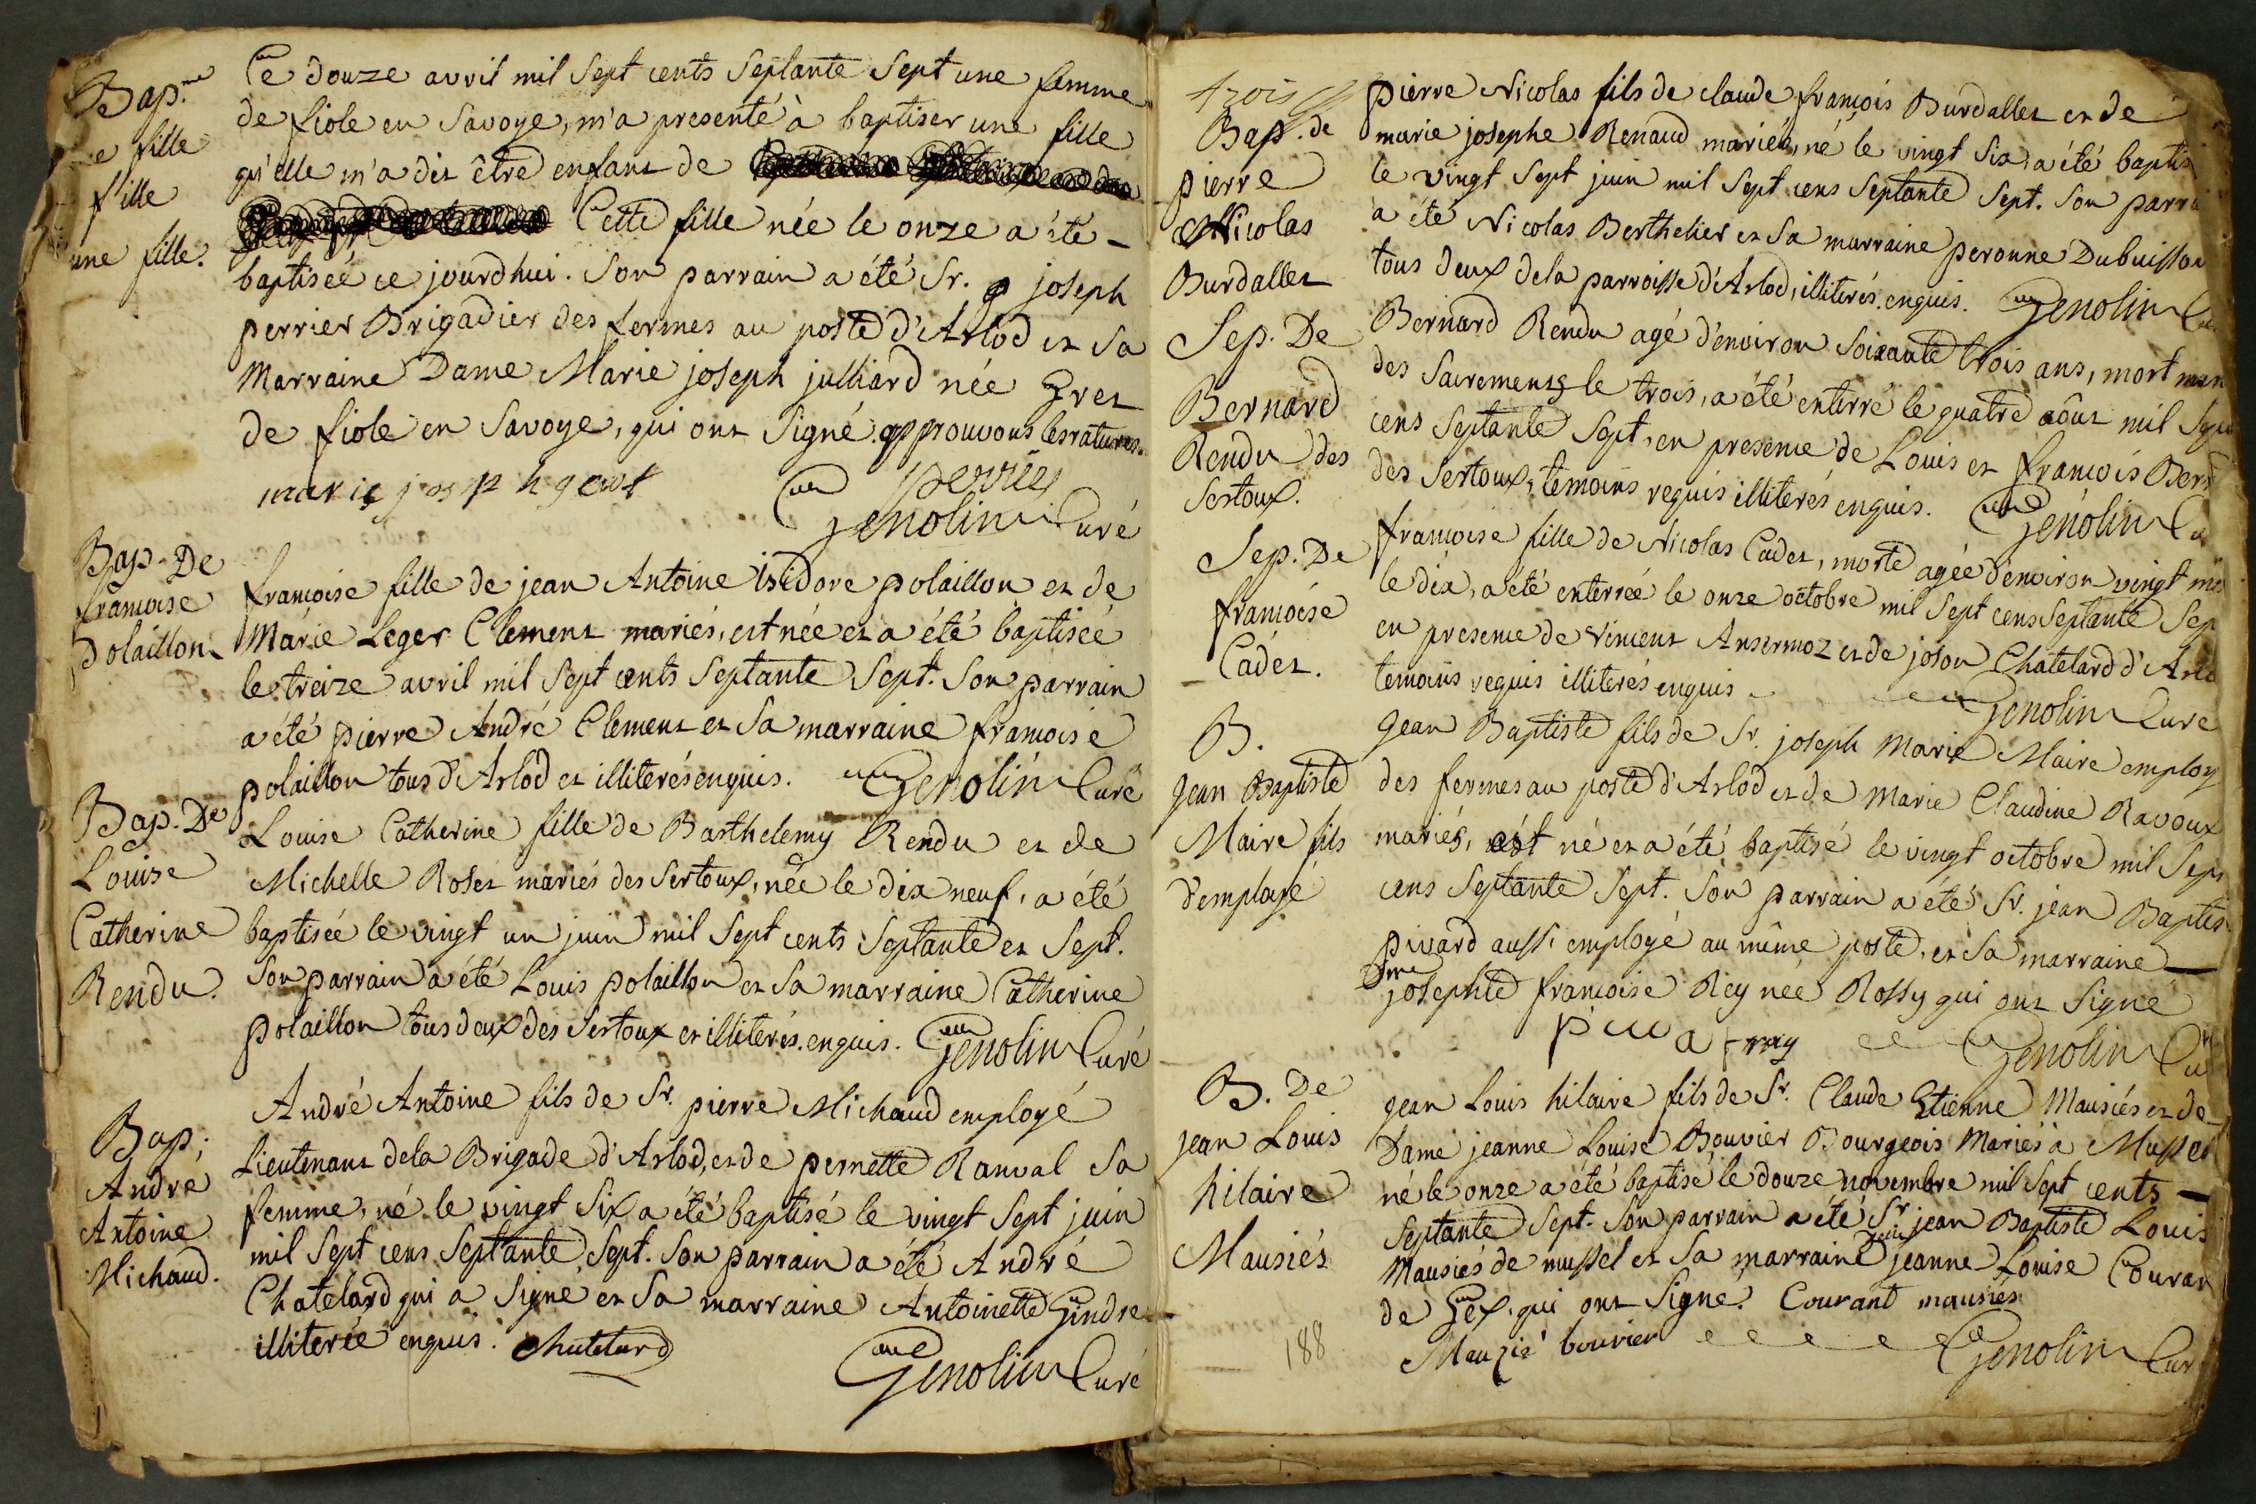 Bap.me
fille
fille
une fille.
Ce douze avril mil Sept cents Septante Sept une femme
de fiole en Savoye, m'a presenté à baptiser une fille
qu'elle m'a dit être enfant de
Cette fille née le onze a été -
baptisée ce jourdhui. Son parrain a été Sr. joseph
perrier Brigadier des fermes au poste d'Arlod et Sa
Marraine Dame Marie joseph julliard née Gret
de fiole en Savoye, qui ont Signé. approuvons les ratures.
marie josph gert perrier
Genolin Curé
Bap. De
francoise
polaillon
francoise fille de jean Antoine isidore polaillon et de
Marie Leger Clement mariés, est née et a été baptisée
le treize avril mil Sept cents Septante Sept. Son parrain
a été pierre André Clement et Sa marraine francoise
polaillon tous d'Arlod et illiterés enquis. Genolin Curé
Bap. De
Louise
Catherine
Rendu.
Louise Catherine fille de Barthelemy Rendu et de
Michelle Roset mariés des Sertoux, née le dix neuf, a été
baptisée le vingt un juin mil Sept cents Septante et Sept.
Son parrain a été Louis polaillon et Sa marraine Catherine
polaillon tous deux des Sertoux et illiterés. enquis. Genolin Curé
Bap;
André
Antoine
Michaud.
André Antoine fils de Sr. pierre Michaud employé
Lieutenant de la Brigade d'Arlod, et de pernette Ranval Sa
femme, né le vingt Six a été baptisé le vingt Sept juin
mil Sept cens Septante Sept. Son parrain a été André
Chatelard qui a Signé et Sa marraine Antoinette Gindre
illiterée enquis. Chatelard
Genolin Curé
trois
Bap. de
pierre
Nicolas
Burdallet
pierre Nicolas fils de claude francois Burdallet et de
marie josephe Renaud mariés, né le vingt Six, a été baptis
le vingt Sept juin mil Sept cens Septante Sept. Son parra
a été Nicolas Berthelier et Sa marraine peronne Dubuisson
tous deux de la parroisse d'Arlod, illiterés. enquis. Genolin Cu
Sep. De
Bernard
Rendu des
Sertoux.
Bernard Rendu agé d'environ Soixante trois ans, mort mun
des Sacrements le trois, a été enterré le quatre aôut mil Sept
cens Septante Sept, en presence de Louis et francois Ber
des Sertoux, temoins requis illiterés enquis. Genolin Cu
Sep. De
francoise
Cadet.
francoise fille de Nicolas Cadet, morte agée d'environ vingt mois
le dix, a été enterrée le onze octobre mil Sept cens Septante Sep
en presence de Vincent Ansermoz et de joson Chatelard d'Arlo
temoins requis illiterés enquis Genolin Curé
B.
jean Baptiste
Maire fils
d'employé
jean Baptiste fils de Sr. joseph Marie Maire employ
des fermes au poste d'Arlod et de Marie Claudine Ravoux
mariés, est né et a été baptisé le vingt octobre mil Sept
cens Septante Sept. Son parrain a été Sr. jean Baptis
pivard aussi employé au même poste, et Sa marraine
Dme josephte francoise Rey née Rossy qui ont Signé
rey Genolin Cu
B. De
jean Louis
hilaire
Mausiés
jean Louis hilaire fils de Sr. Claude Etienne Mausiés et de
Dame jeanne Louise Bouvier Bourgeois Mariés à Mussel
né le onze a été baptisé le douze novembre mil Sept cents -
Septante Sept. Son parrain a été Sr jean Baptiste Louis
Mausiés de mussel et Sa marraine jeanne Louise Couran
de Gex. qui ont Signé. Courant mausiés
Mauzié bouvier Genolin Cur
188